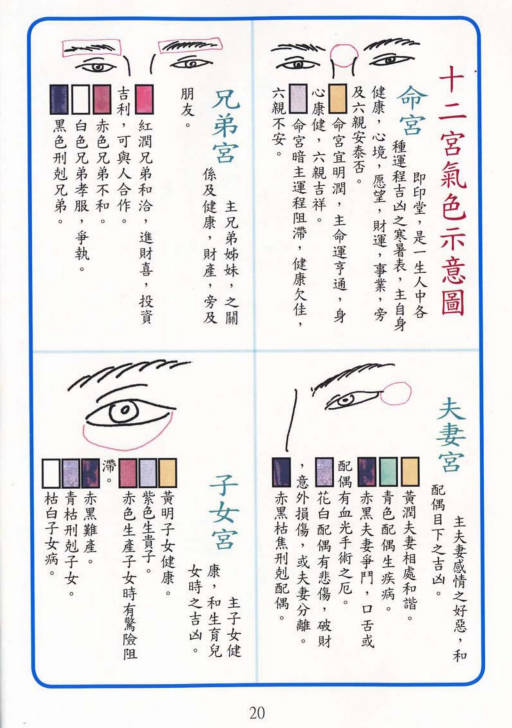 十二宮氣色示意圖
命宮
即印堂，是一生人中各
種運程吉凶之寒暑表，主自身
健康，心境，愿望，財運，事業，旁
及六親安泰否。
命宮宜明潤，主命運亨通，身
心康健，六親吉祥。
命宮暗主運程阻滯，健康欠佳，
六親不安。
兄弟宮
主兄弟姊妹，之關
係及健康，財產，旁及
朋友。
紅潤兄弟和洽，進財喜，投資
吉利，可與人合作。
赤色兄弟不和。
白色兄弟孝服，爭執。
黑色刑剋兄弟。
夫妻宮
主夫妻感情之好惡，和
配偶目下之吉凶。
黃潤夫妻相處和諧。
青色配偶生疾病。
赤黑夫妻爭鬥，口舌或
配偶有血光手術之厄。
花白配偶有悲傷，破財
，意外損傷，或夫妻分離。
赤黑枯焦刑剋配偶。
子女宮
主子女健
康，和生育兒
女時之吉凶。
黃明子女健康。
紫色生貴子。
赤色生產子女時有驚險阻
滯。
赤黑難產。
青枯刑剋子女。
枯白子女病。
20